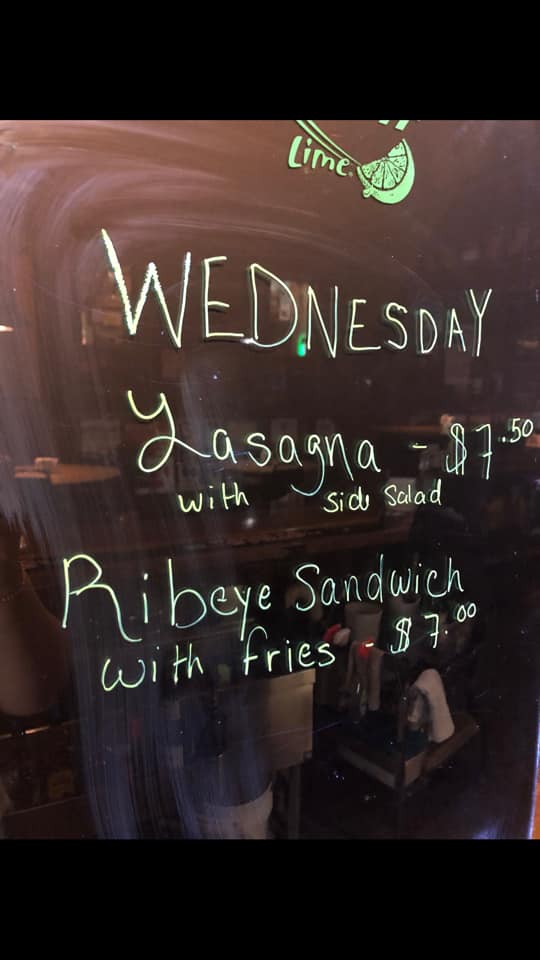 Lime
WEDNESDAY
Lasagna - $7.50
with side Salad
Ribeye Sandwich
with fries - $7.00